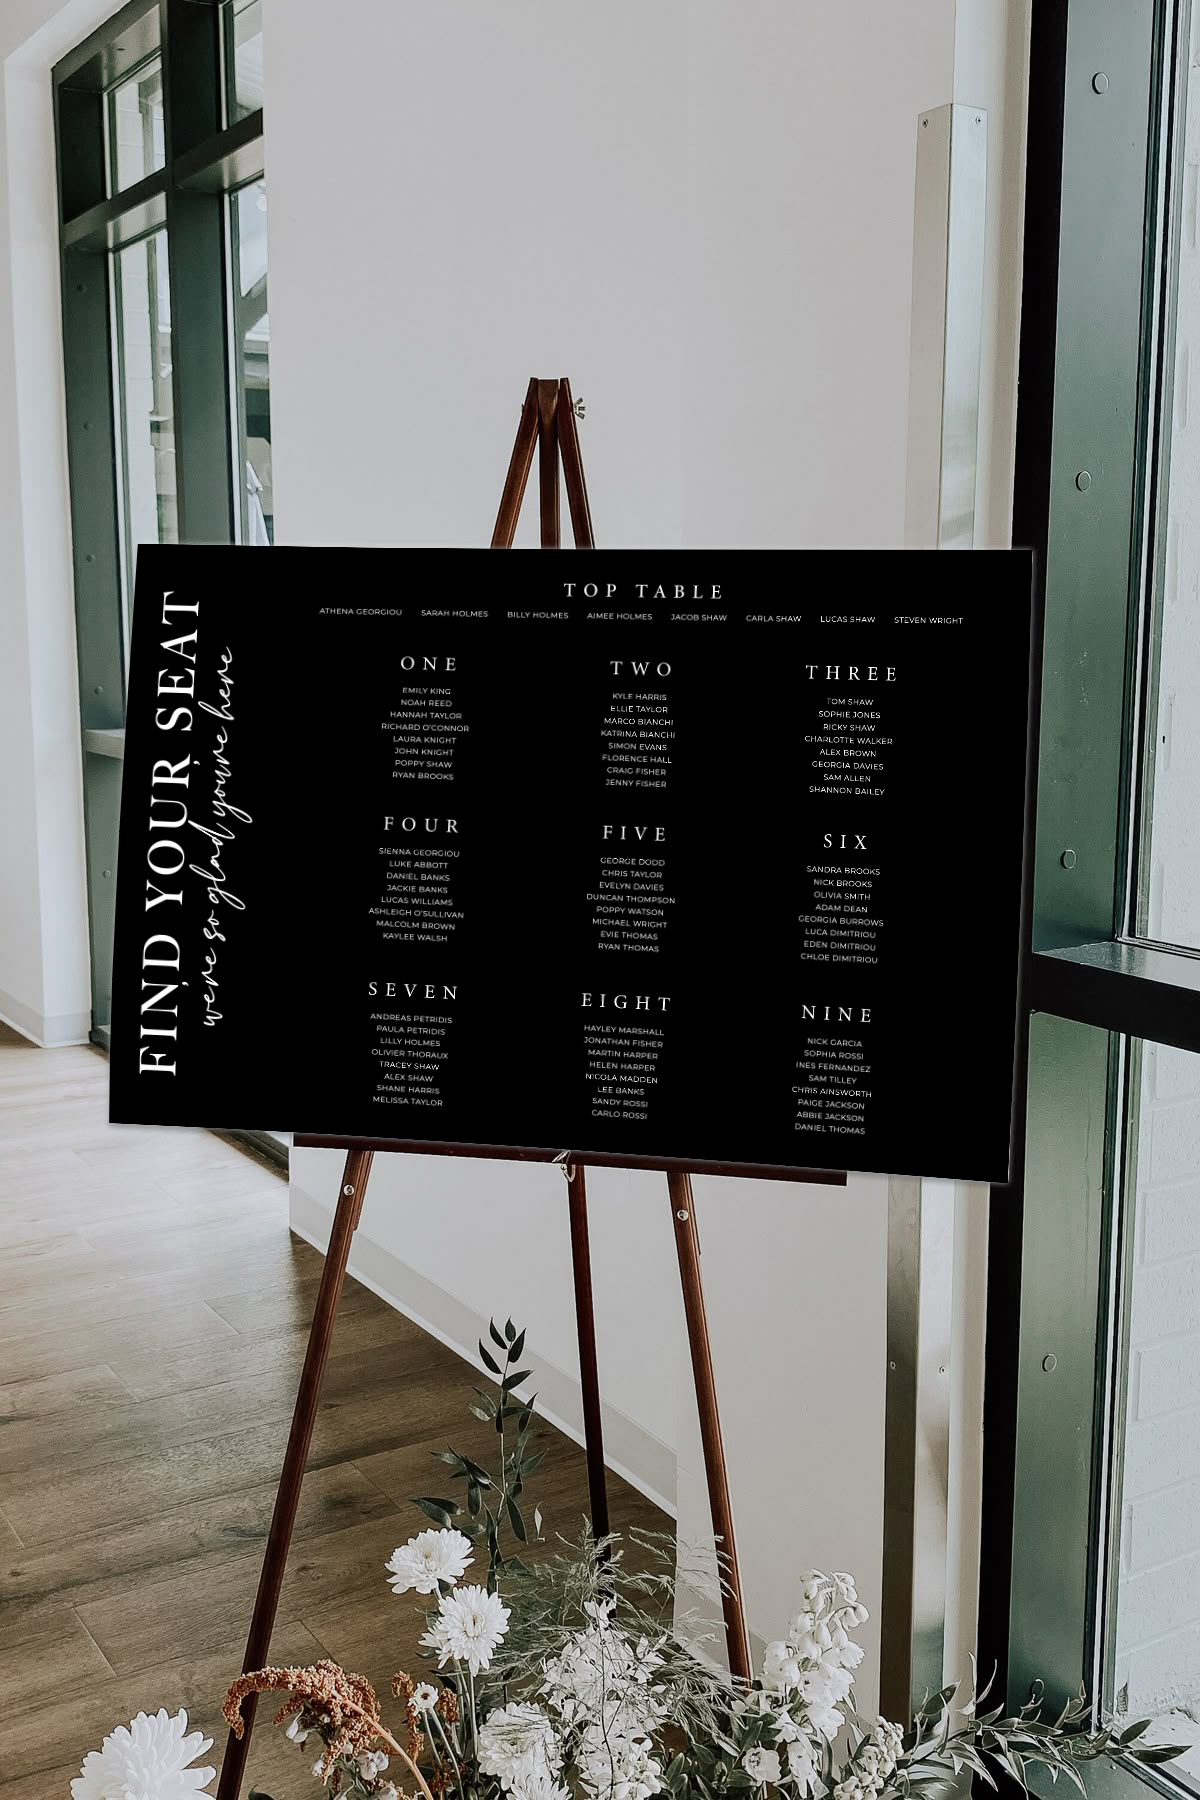 FIND YOUR SEAT
we're so glad you're here
TOP TABLE
ATHENA GEORGIOU SARAH HOLMES BILLY HOLMES AIMEE HOLMES JACOB SHAW CARLA SHAW LUCAS SHAW STEVEN WRIGHT
ONE
EMILY KING
NOAH REED
HANNAH TAYLOR
RICHARD O'CONNOR
LAURA KNIGHT
JOHN KNIGHT
POPPY SHAW
RYAN BROOKS
TWO
KYLE HARRIS
ELLIE TAYLOR
MARCO BIANCHI
KATRINA BIANCHI
SIMON EVANS
FLORENCE HALL
CRAIG FISHER
JENNY FISHER
THREE
TOM SHAW
SOPHIE JONES
RICKY SHAW
CHARLOTTE WALKER
ALEX BROWN
GEORGIA DAVIES
SAM ALLEN
SHANNON BAILEY
FOUR
SIENNA GEORGIOU
LUKE ABBOTT
DANIEL BANKS
JACKIE BANKS
LUCAS WILLIAMS
ASHLEIGH O'SULLIVAN
MALCOLM BROWN
KAYLEE WALSH
FIVE
GEORGE DODD
CHRIS TAYLOR
EVELYN DAVIES
DUNCAN THOMPSON
POPPY WATSON
MICHAEL WRIGHT
EVIE THOMAS
RYAN THOMAS
SIX
SANDRA BROOKS
NICK BROOKS
OLIVIA SMITH
ADAM DEAN
GEORGIA BURROWS
LUCA DIMITRIOU
EDEN DIMITRIOU
CHLOE DIMITRIOU
SEVEN
ANDREAS PETRIDIS
PAULA PETRIDIS
LILLY HOLMES
OLIVIER THORAUX
TRACEY SHAW
ALEX SHAW
SHANE HARRIS
MELISSA TAYLOR
EIGHT
HAYLEY MARSHALL
JONATHAN FISHER
MARTIN HARPER
HELEN HARPER
NICOLA MADDEN
LEE BANKS
SANDY ROSSI
CARLO ROSSI
NINE
NICK GARCIA
SOPHIA ROSSI
INES FERNANDEZ
SAM TILLEY
CHRIS AINSWORTH
PAIGE JACKSON
ABBIE JACKSON
DANIEL THOMAS